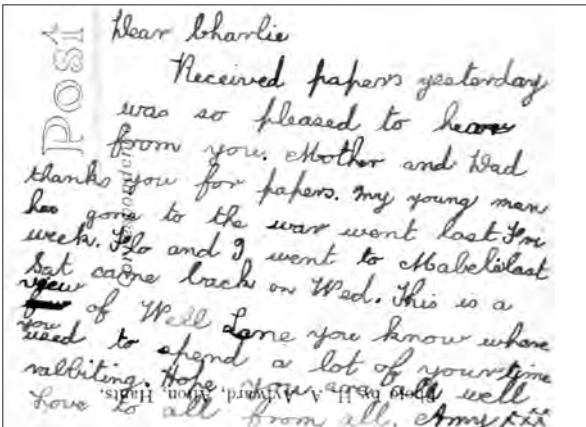 Post
Correspondence
Dear Charlie
Received papers yesterday
was so pleased to hear
from you. Mother and Dad
thanks you for papers. My young man
has gone to the war went last Fri
week. Flo and I went to Mabels last
Sat came back on Wed. This is a
view of Well Lane you know where
you used to spend a lot of your time
rabbiting. Hope you are all well
Love to all from all. Amy xxx
Photo by H. A. Aylward, Alton, Hants.